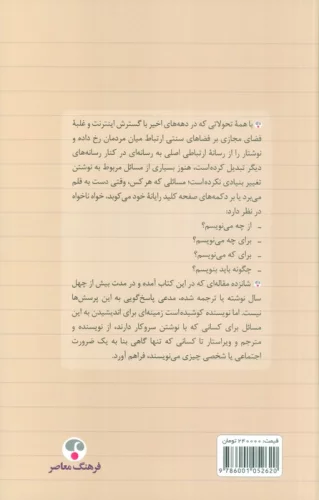 با همهٔ تحولاتی که در دهه‌های اخیر با گسترش اینترنت و غلبهٔ
فضای مجازی بر فضاهای سنتی ارتباط میان مردمان رخ داده و
نوشتار را از رسانهٔ ارتباطی اصلی به رسانه‌ای در کنار رسانه‌های
دیگر تبدیل کرده‌است، هنوز بسیاری از مسائل مربوط به نوشتن
تغییر بنیادی نکرده‌است؛ مسائلی که هر کس، وقتی دست به قلم
می‌برد یا بر دکمه‌های صفحه کلید رایانهٔ خود می‌کوبد، خواه ناخواه
در نظر دارد:
- از چه می‌نویسم؟
- برای چه می‌نویسم؟
- برای که می‌نویسم؟
- چگونه باید بنویسم؟
شانزده مقاله‌ای که در این کتاب آمده و در مدت بیش از چهل
سال نوشته یا ترجمه شده، مدعی پاسخ‌گویی به این پرسش‌ها
نیست. اما نویسنده کوشیده‌است زمینه‌ای برای اندیشیدن به این
مسائل برای کسانی که با نوشتن سروکار دارند، از نویسنده و
مترجم و ویراستار تا کسانی که تنها گاهی بنا به یک ضرورت
اجتماعی یا شخصی چیزی می‌نویسند، فراهم آورد.
فرهنگ معاصر
قیمت: ۲۴۰۰۰۰ تومان
9786001052620